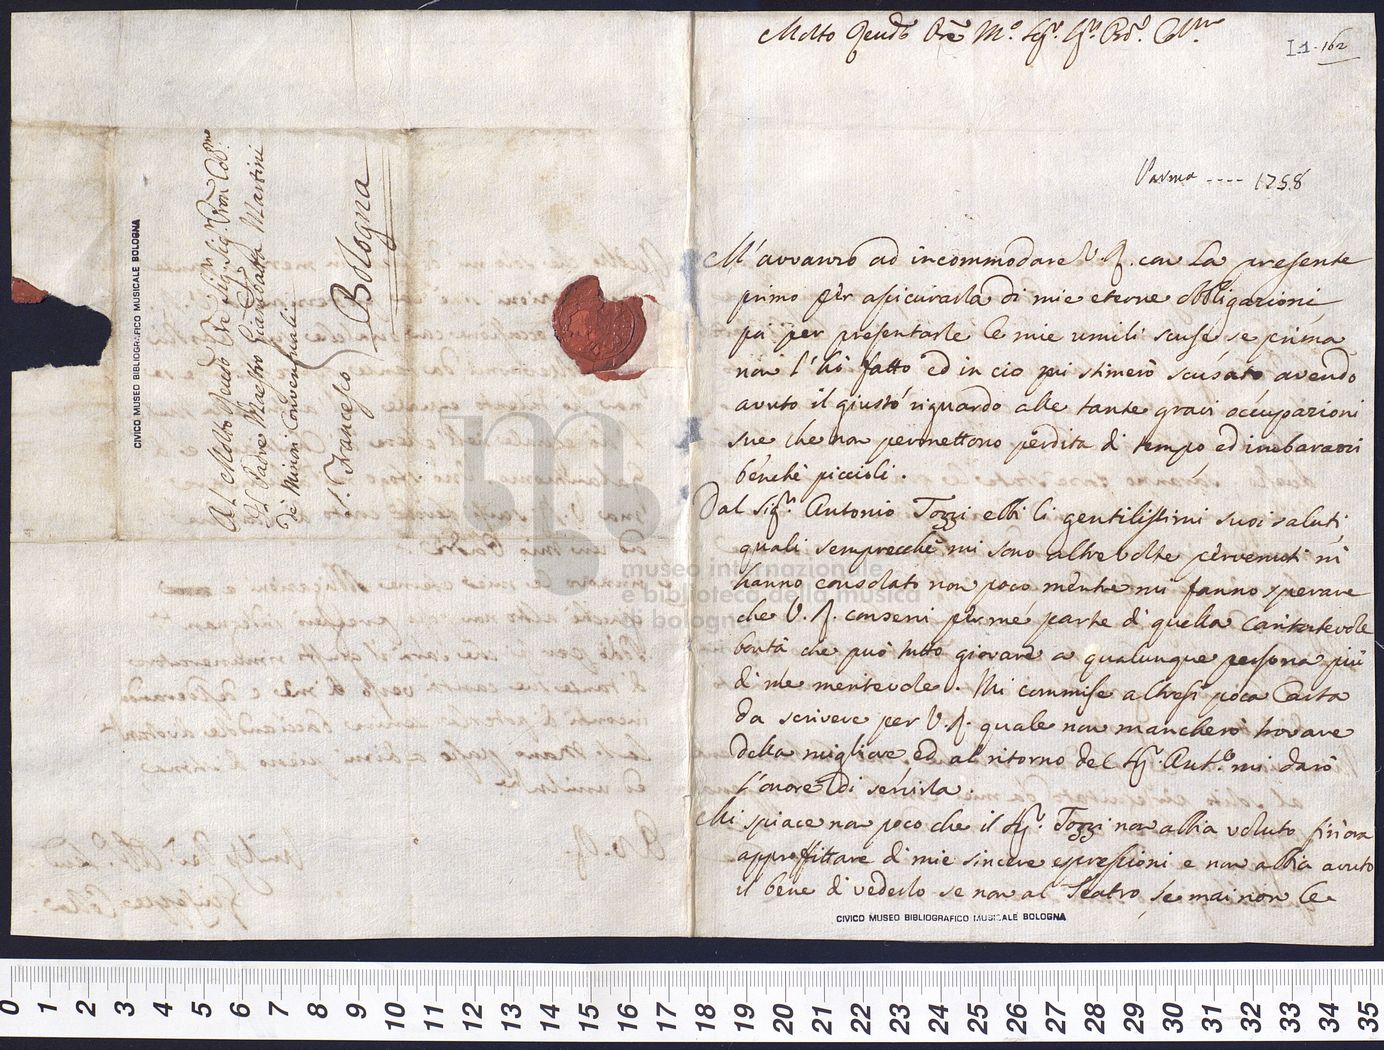 Al Molto Revdo Pre Sig. Sig. Pron Col.mo
Il Padre Maestro Giambatta Martini
De Minori Conventuali
S. Francesco Bologna
CIVICO MUSEO BIBLIOGRAFICO MUSICALE BOLOGNA
Molto Revdo Pre M.o Sig.r Sig.r Pro.
I.1.162
Parma ---- 1758
M'avvanzo ad incommodare V. R. con la presente
primo per assicurarla di mie eterne obbligazioni
poi per presentarle le mie umili scuse se prima
non l'hò fatto ed in cio poi stimerò scusato avendo
avuto il giusto riguardo alle tante gravi occupazioni
sue che non permettono perdita di tempo ed imbarazzi
benchè piccioli.
Dal Sig.r Antonio Tozzi ebbi li gentilissimi suoi saluti
quali semprecchè mi sono altre volte pervenuti mi
hanno consolato non poco mentre mi fanno sperare
che V. R. conservi per me parte di quella caritatevole
bontà che può tutto giovare a qualunque persona più
di me meritevole. Mi commise altresì poca Carta
da scrivere per V. R. quale non mancherò trovare
della migliore ed al ritorno del Sig. Ant.o mi darò
l'onore di servirla.
Mi spiace non poco che il Sig.r Tozzi non abbia voluto finora
approffittare di mie sincere espressioni e non abbia avuto
il bene di vederlo se non al Teatro, se mai non le
CIVICO MUSEO BIBLIOGRAFICO MUSICALE BOLOGNA
museo internazionale
e biblioteca della musica
di bologna
0 1 2 3 4 5 6 7 8 9 10 11 12 13 14 15 16 17 18 19 20 21 22 23 24 25 26 27 28 29 30 31 32 33 34 35